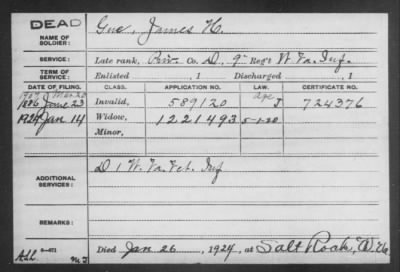 DEAD
NAME OF SOLDIER:
Gue, James H.
SERVICE:
Late rank, Priv Co. D, 9" Reg't W Va. Inf.
TERM OF SERVICE:
Enlisted , 1 Discharged , 1
DATE OF FILING. CLASS. APPLICATION NO. LAW. CERTIFICATE NO.
1907 Mar 20 Age
1886 June 23 Invalid, 589120 J 724376
1924 Jan 14 Widow, 1221493 5-1-20
Minor,
ADDITIONAL SERVICES:
D 1 W. Va. Vet. Inf
REMARKS:
Died Jan 26, 1924, at Salt Rock, W. Va
3-571